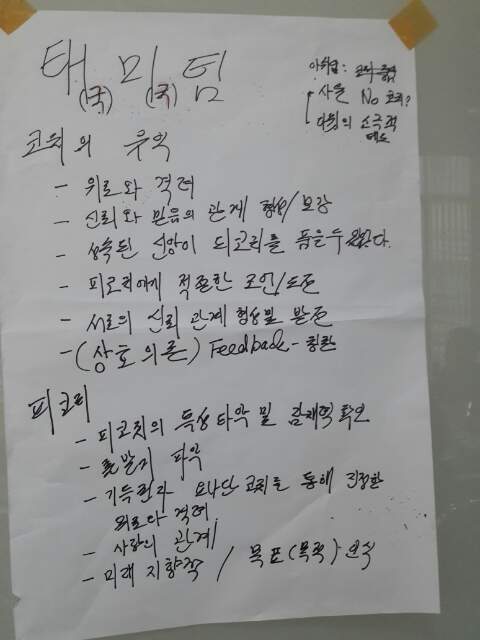 태미팀
(국) (국)
아쉬움:
사론 No 코치?
대화의 소극적
태도
코치의 유익
- 위로와 격려
- 신뢰와 믿음의 관계 형성/보강
- 성숙된 신앙이 피코치를 품을 수 있었다.
- 피코치에게 적절한 조언/도전
- 서로의 신뢰 관계 형성 및 발전
- (상호의존) Feedback - 칭찬
피코치
- 피코치의 특성 파악 및 잠재력 확인
- 파악
- 통해 진정한
위로와 격려
- 사랑의 관계
- 미래 지향적 / 목표(목적) 인식